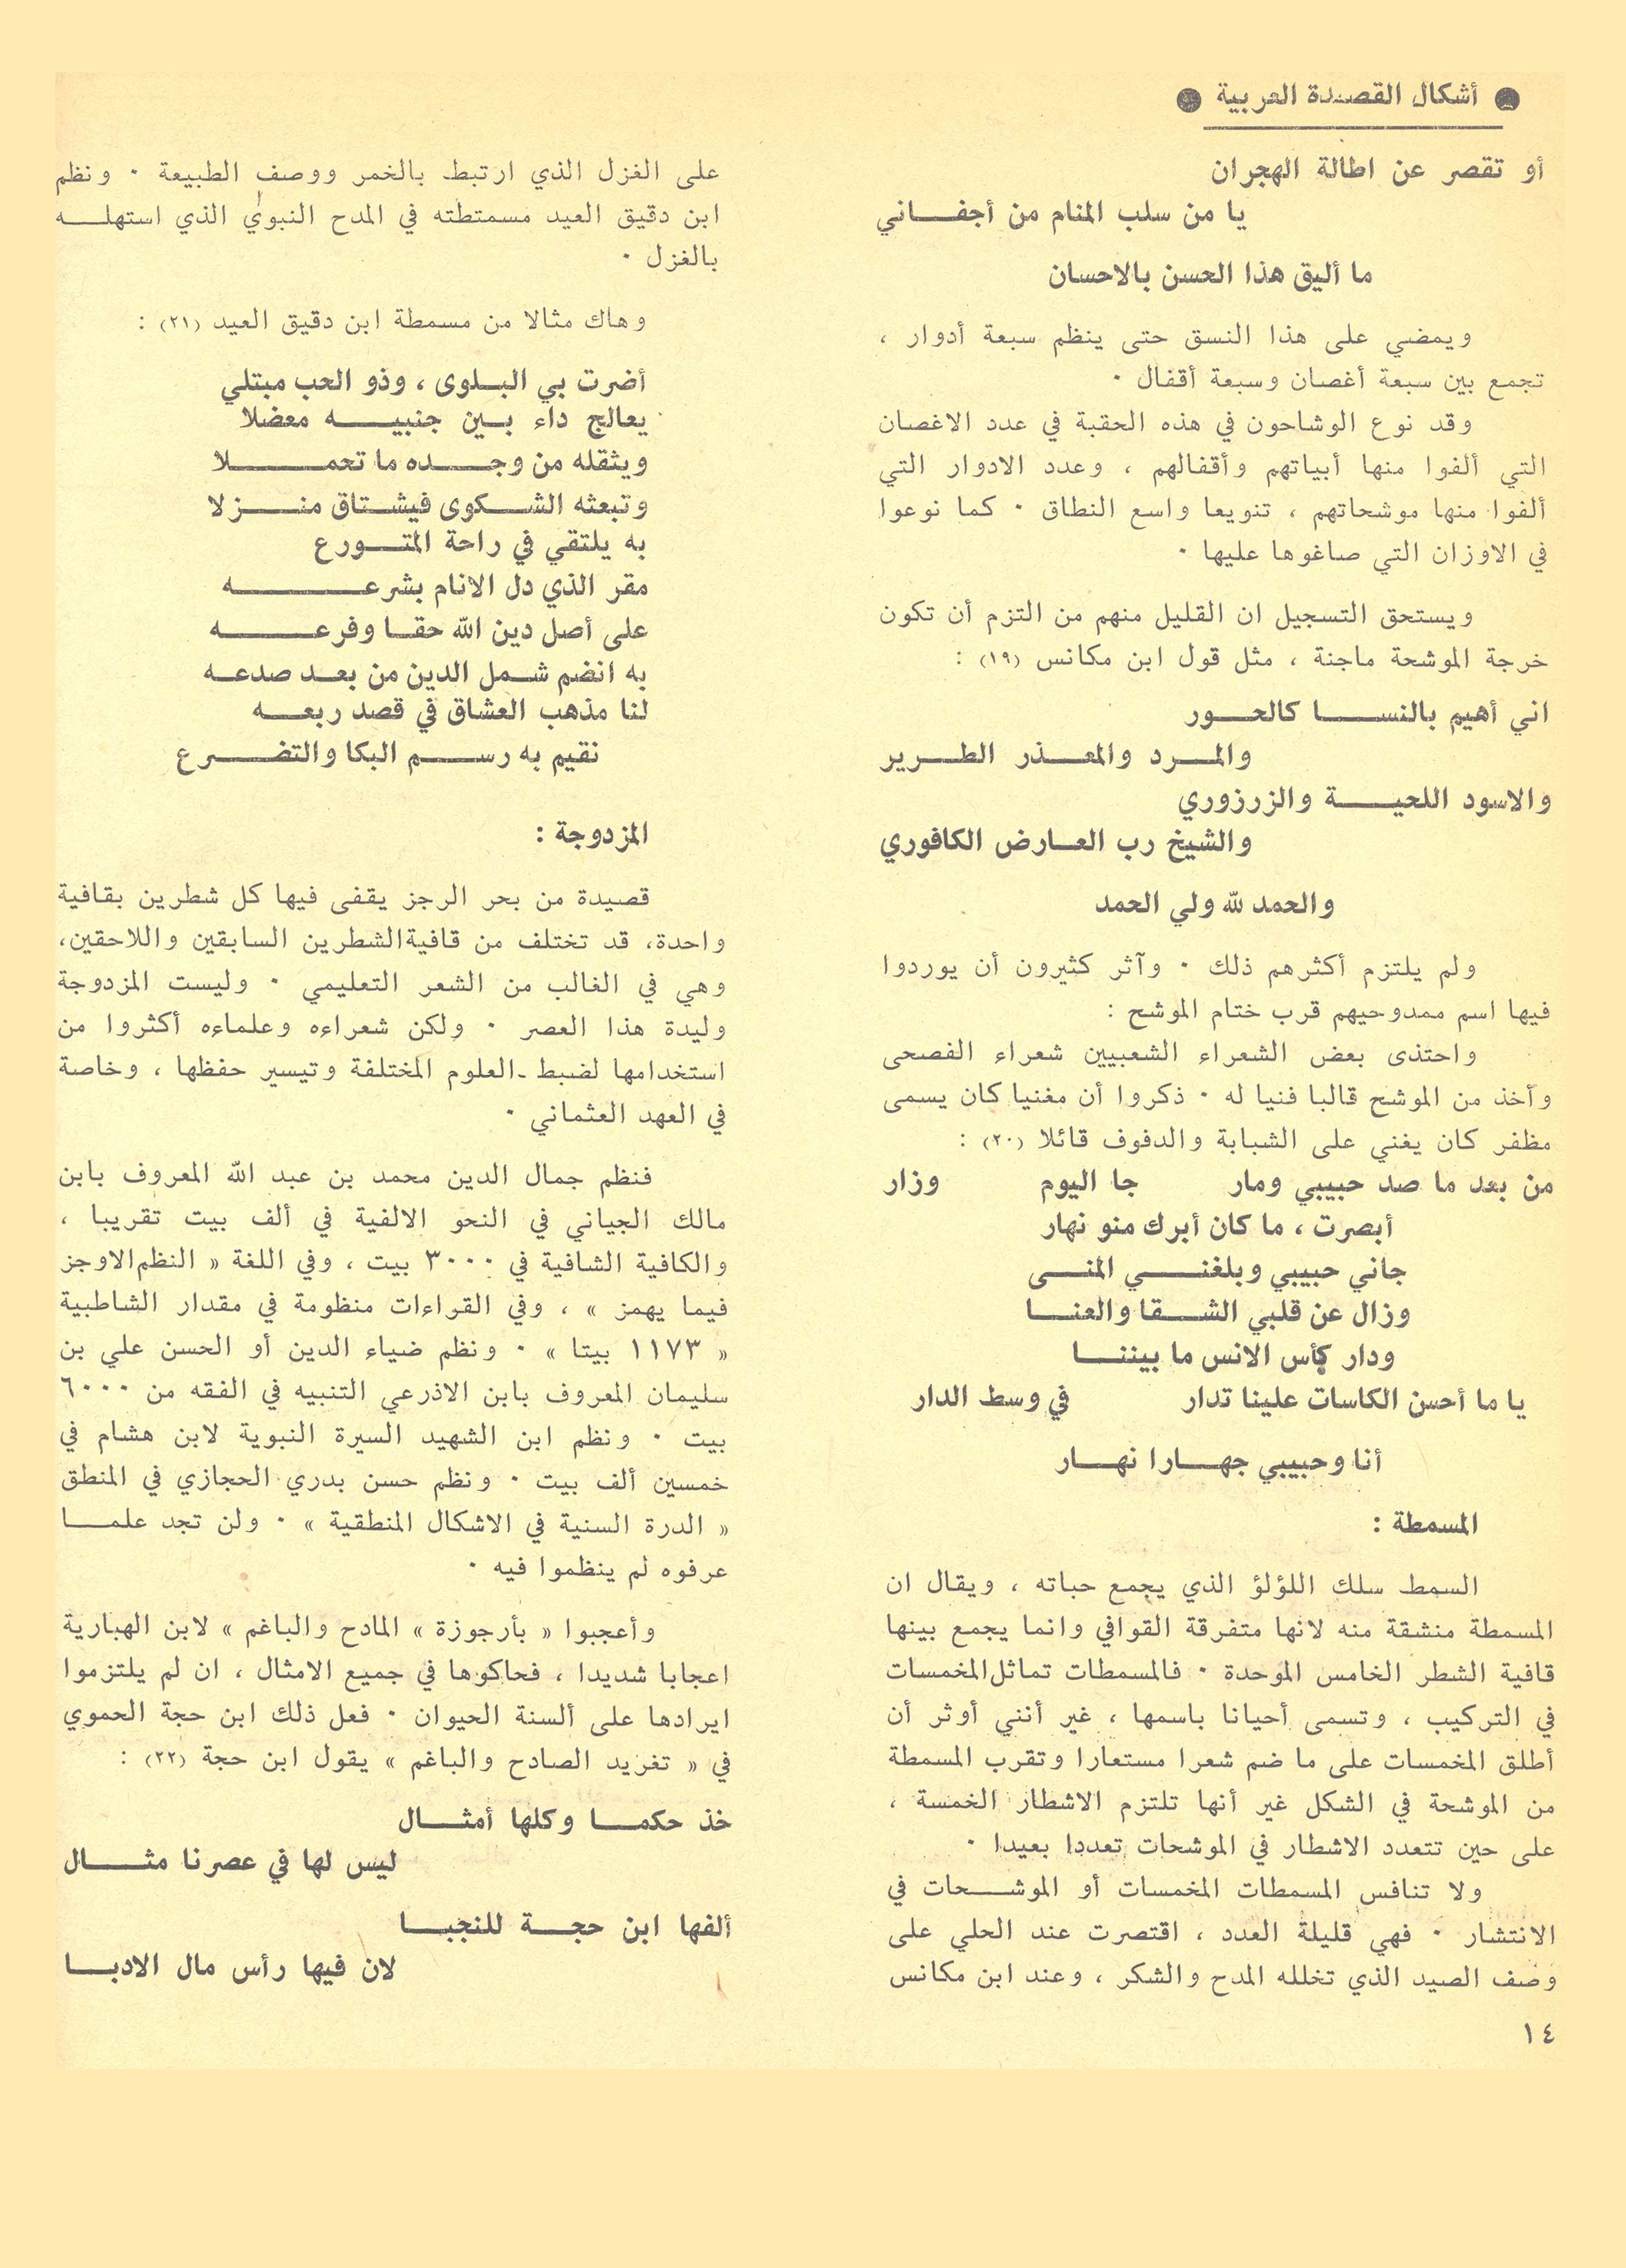 ● أشكال القصيدة العربية ●
أو تقصر عن اطالة الهجران
يا من سلب المنام من أجفـــاني
ما أليق هذا الحسن بالاحسان
ويمضي على هذا النسق حتى ينظم سبعة أدوار ،
تجمع بين سبعة أغصان وسبعة أقفال ٠
وقد نوع الوشاحون في هذه الحقبة في عدد الاغصان
التي ألفوا منها أبياتهم وأقفالهم ، وعدد الادوار التي
ألفوا منها موشحاتهم ، تنويعا واسع النطاق ٠ كما نوعوا
في الاوزان التي صاغوها عليها ٠
ويستحق التسجيل ان القليل منهم من التزم أن تكون
خرجة الموشحة ماجنة ، مثل قول ابن مكانس (١٩) :
اني أهيم بالنســـا كالحـــور
والمـــرد والمعـــذر الطـــرير
والاسود اللحيـــة والزرزوري
والشيخ رب العــارض الكافوري
والحمد لله ولي الحمد
ولم يلتزم أكثرهم ذلك ٠ وآثر كثيرون أن يوردوا
فيها اسم ممدوحيهم قرب ختام الموشح :
واحتذى بعض الشعراء الشعبيين شعراء الفصحى
وأخذ من الموشح قالبا فنيا له ٠ ذكروا أن مغنيا كان يسمى
مظفر كان يغني على الشبابة والدفوف قائلا (٢٠) :
من بعد ما صد حبيبي ومار جا اليوم وزار
أبصرت ، ما كان أبرك منو نهار
جاني حبيبي وبلغنـــي المنـــى
وزال عن قلبي الشـــقا والعنـــا
ودار كأس الانس ما بيننـــا
يا ما أحسن الكاسات علينا تدار في وسط الدار
أنا وحبيبي جهـــارا نهـــار
المسمطة :
السمط سلك اللؤلؤ الذي يجمع حباته ، ويقال ان
المسمطة منشقة منه لانها متفرقة القوافي وانما يجمع بينها
قافية الشطر الخامس الموحدة ٠ فالمسمطات تماثل المخمسات
في التركيب ، وتسمى أحيانا باسمها ، غير أنني أوثر أن
أطلق المخمسات على ما ضم شعرا مستعارا وتقرب المسمطة
من الموشحة في الشكل غير أنها تلتزم الاشطار الخمسة ،
على حين تتعدد الاشطار في الموشحات تعددا بعيدا ٠
ولا تنافس المسمطات المخمسات أو الموشـــحات في
الانتشار ٠ فهي قليلة العدد ، اقتصرت عند الحلي على
وصف الصيد الذي تخلله المدح والشكر ، وعند ابن مكانس
على الغزل الذي ارتبط بالخمر ووصف الطبيعة ٠ ونظم
ابن دقيق العيد مسمتطته في المدح النبوي الذي استهلـــه
بالغزل ٠
وهاك مثالا من مسمطة ابن دقيق العيد (٢١) :
أضرت بي البـــلوى ، وذو الحب مبتلي
يعالج داء بـــين جنبيـــه معضلا
ويثقله من وجـــده ما تحمـــلا
وتبعثه الشـــكوى فيشـــتاق منـــزلا
به يلتقي في راحة المتـــورع
مقر الذي دل الانام بشرعـــه
على أصل دين الله حقـــا وفرعـــه
به انضم شـــمل الدين من بعـــد صدعـــه
لنا مذهب العشاق في قصد ربعـــه
نقيم به رســـم البكا والتضـــرع
المزدوجة :
قصيدة من بحر الرجز يقفى فيها كل شطرين بقافية
واحدة، قد تختلف من قافية الشطرين السابقين واللاحقين،
وهي في الغالب من الشعر التعليمي ٠ وليست المزدوجة
وليدة هذا العصر ٠ ولكن شعراءه وعلماءه أكثروا من
استخدامها لضبط العلوم المختلفة وتيسير حفظها ، وخاصة
في العهد العثماني ٠
فنظم جمال الدين محمد بن عبد الله المعروف بابن
مالك الجياني في النحو الالفية في ألف بيت تقريبا ،
والكافية الشافية في ٣٠٠٠ بيت ، وفي اللغة « النظم الاوجز
فيما يهمز » ، وفي القراءات منظومة في مقدار الشاطبية
« ١١٧٣ بيتا » ٠ ونظم ضياء الدين أو الحسن علي بن
سليمان المعروف بابن الاذرعي التنبيه في الفقه من ٦٠٠٠
بيت ٠ ونظم ابن الشهيد السيرة النبوية لابن هشام في
خمسين ألف بيت ٠ ونظم حسن بدري الحجازي في المنطق
« الدرة السنية في الاشكال المنطقية » ٠ ولن تجد علمـــا
عرفوه لم ينظموا فيه ٠
وأعجبوا « بأرجوزة » المادح والباغم » لابن الهبارية
اعجابا شديدا ، فحاكوها في جميع الامثال ، ان لم يلتزموا
ايرادها على ألسنة الحيوان ٠ فعل ذلك ابن حجة الحموي
في « تغريد الصادح والباغم » يقول ابن حجة (٢٢) :
خذ حكمـــا وكلها أمثـــال
ليس لها في عصرنا مثـــال
ألفها ابن حجـــة للنجبـــا
لان فيها رأس مال الادبـــا
١٤